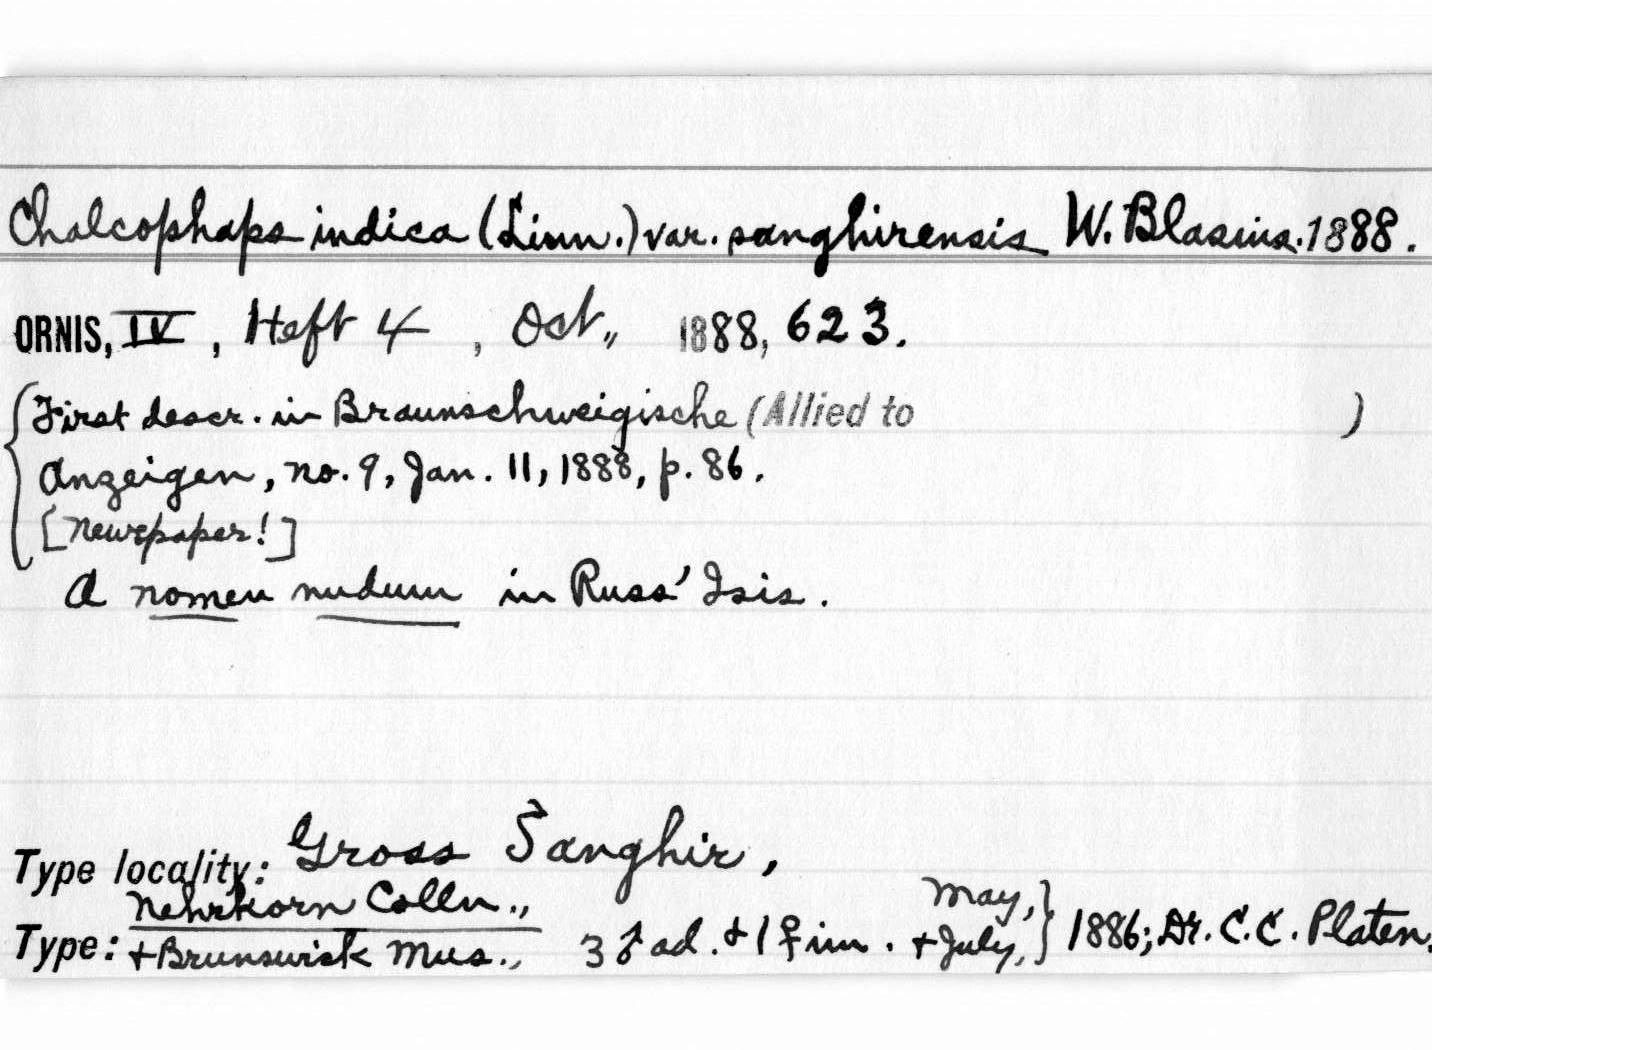 Chalcophaps indica (Linn.) var. sanghirensis W. Blasius. 1888.
ORNIS, IV, Heft 4, Oct., 1888, 623.
{First descr. in Braunschweigische (Allied to )
Anzeigen, no. 9, Jan. 11, 1888, p. 86.
[Newspaper!]
A nomen nudum in Russ' Isis.
Type locality: Gross Sanghir,
Nehrkorn Colln., May,}
Type: + Brunswick Mus., 3 ♂ ad. + 1 ♀ im. + July,} 1886; Dr. C. C. Platen.